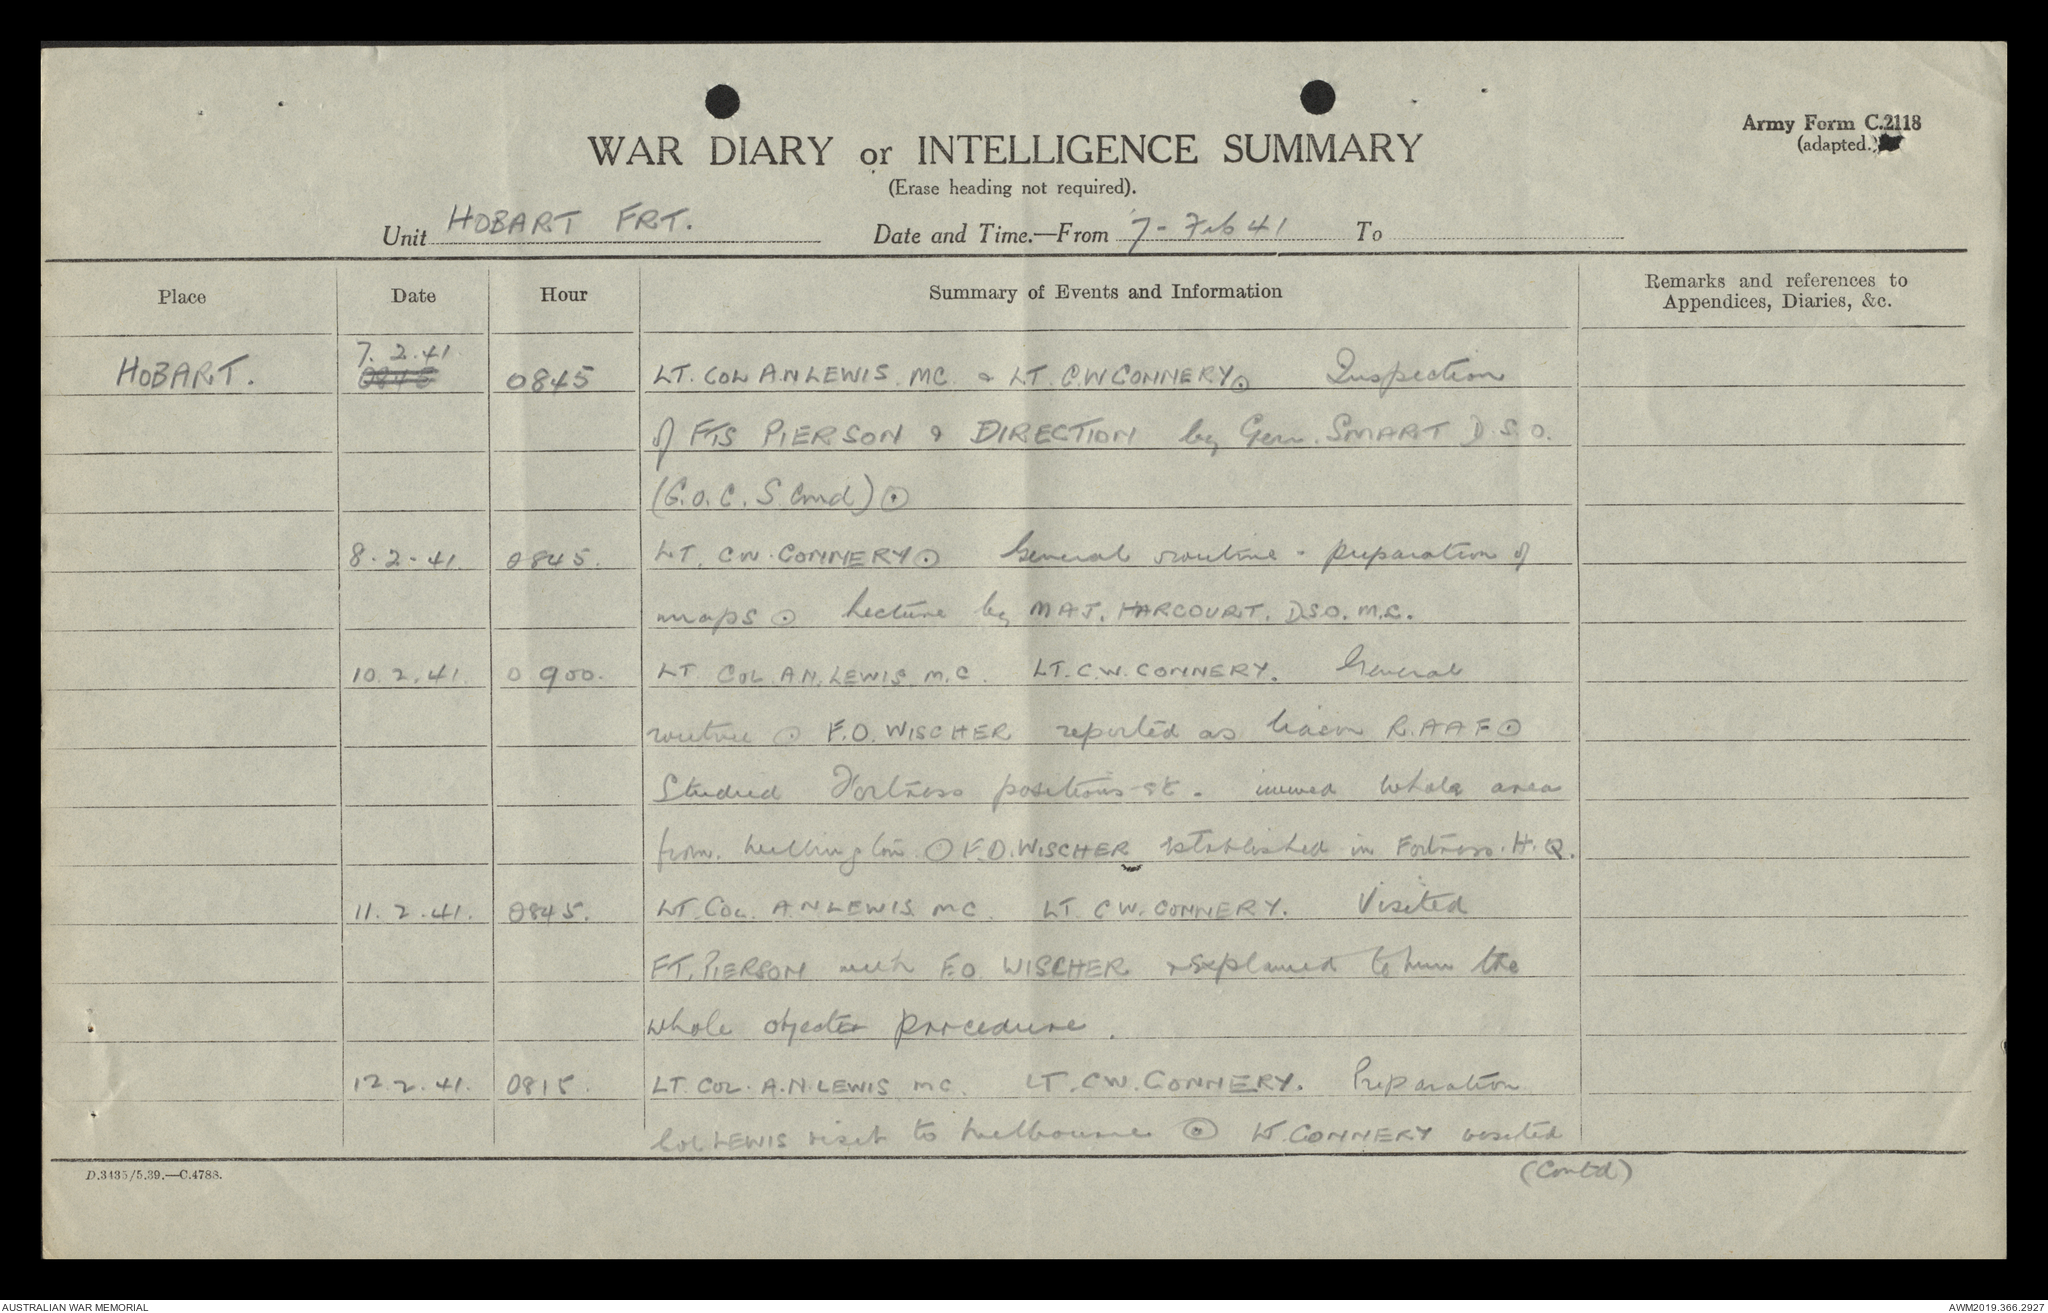 Army Form C.2118
(adapted.)
WAR DIARY or INTELLIGENCE SUMMARY
(Erase heading not required).
Unit HOBART FRT. Date and Time.—From 7 - Feb 41 To
Place Date Hour Summary of Events and Information Remarks and references to Appendices, Diaries, &c.
HOBART. 7.2.41. 0845 LT. COL A.N LEWIS. MC. & LT. C.W CONNERY⊙ Inspection
of FTS PIERSON & DIRECTION by Gen. SMART D.S.O.
(G.O.C. S Cmd) ⊙
8.2.41. 0845. LT. CW. CONNERY⊙ General routine - preparation of
maps ⊙ Lecture by MAJ. HARCOURT. DSO. M.C.
10.2.41. 0900. LT COL A.N. LEWIS. M.C. LT. C.W. CONNERY. General
routine ⊙ F.O. WISCHER reported as liason R.A A F ⊙
Studied Fortress positions etc. whole area
from Wellington ⊙ F.O. WISCHER established in Fortress. H.Q.
11.2.41. 0845. LT. COL. A N LEWIS MC. LT. CW. CONNERY. Visited
FT. PIERSON with F.O. WISCHER & explained to him the
whole procedure.
12.2.41. 0815. LT. COL. A.N. LEWIS MC. LT. CW. CONNERY. Preparation
Col LEWIS visit to Melbourne ⊙ LT. CONNERY visited
(Contd)
D.3435/5.39.—C.4788.
AUSTRALIAN WAR MEMORIAL AWM2019.366.2927